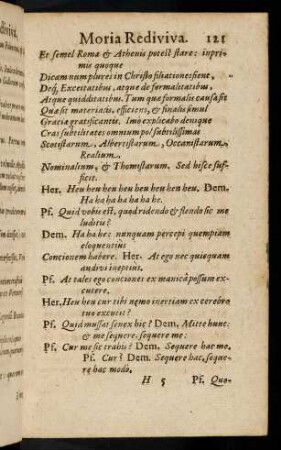 Moria Rediviva. 121
Et semel Romæ & Athenis potest stare: inpri-
mis quoque
Dicam num plures in Christo filtationes fient,
Deq́, Exceitatibus, atque de formalitatibus,
Atque quidditatibus. Tum quæ formalis causa sit
Quæ sit materialis, efficiens, & finalis simul
Gratiæ gratificantis. Imò explicabo denique
Cras subtilitates omnium pol subtilissimas
Scotistarum, Albertistarum, Occanistarum,
Realium,
Nominalium, & Thomistarum. Sed hisce suf-
ficit.
Her. Heu heu heu heu heu heu heu heu. Dem.
Ha ha ha ha ha ha he.
Ps. Quid vobis est, quod ridendo & flendo sic me
luditis?
Dem. Ha ha he: nunquam percepi quempiam
eloquentius
Concionem habere. Her. At ego nec quicquam
audivi ineptius.
Ps. At tales ego contiones ex manica possum ex-
cutere.
Her. Heu heu cur tibi nemo inertiam ex cerebro
tuo excutit?
Ps. Quid mussas senex hic? Dem. Mitte hunc:
& me sequere, sequere me:
Ps. Cur me sic trahis? Dem. Sequere hac me.
Ps. Cur? Dem. Sequere hac, seque-
re hac modò.
H 5 Ps. Quo-